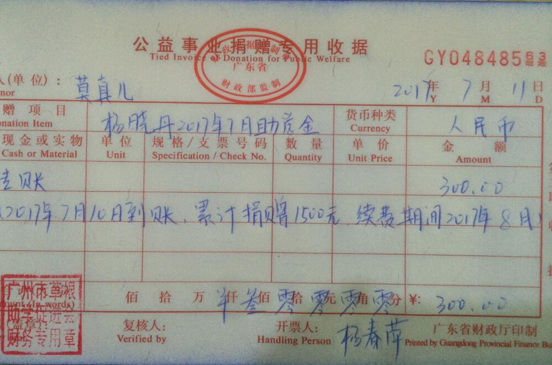 公益事业捐赠专用收据
Tied Invoice of Donation for Public Welfare
GY048485
广东省
财政部监制
人(单位): 莫真儿 2017年 7月 11日
nor Y M D
赠 项目 杨晓丹2017年7月助学金 货币种类 人民币
nation Item Currency
现金或实物 单位 规格/支票号码 数量 单价 金额
Cash or Material Unit Specification / Check No. Quantity Unit Price Amount
转账 300.00
2017年7月10日到账、累计捐赠1500元, 续费期间2017年8月
佰 拾 万 仟叁佰零拾零元零角零分 ¥: 300.00
广州市草根
助学促进会
财务专用章
复核人: 开票人: 杨春萍 广东省财政厅印制
Verified by Handling Person Printed by Guangdong Provincial Finance